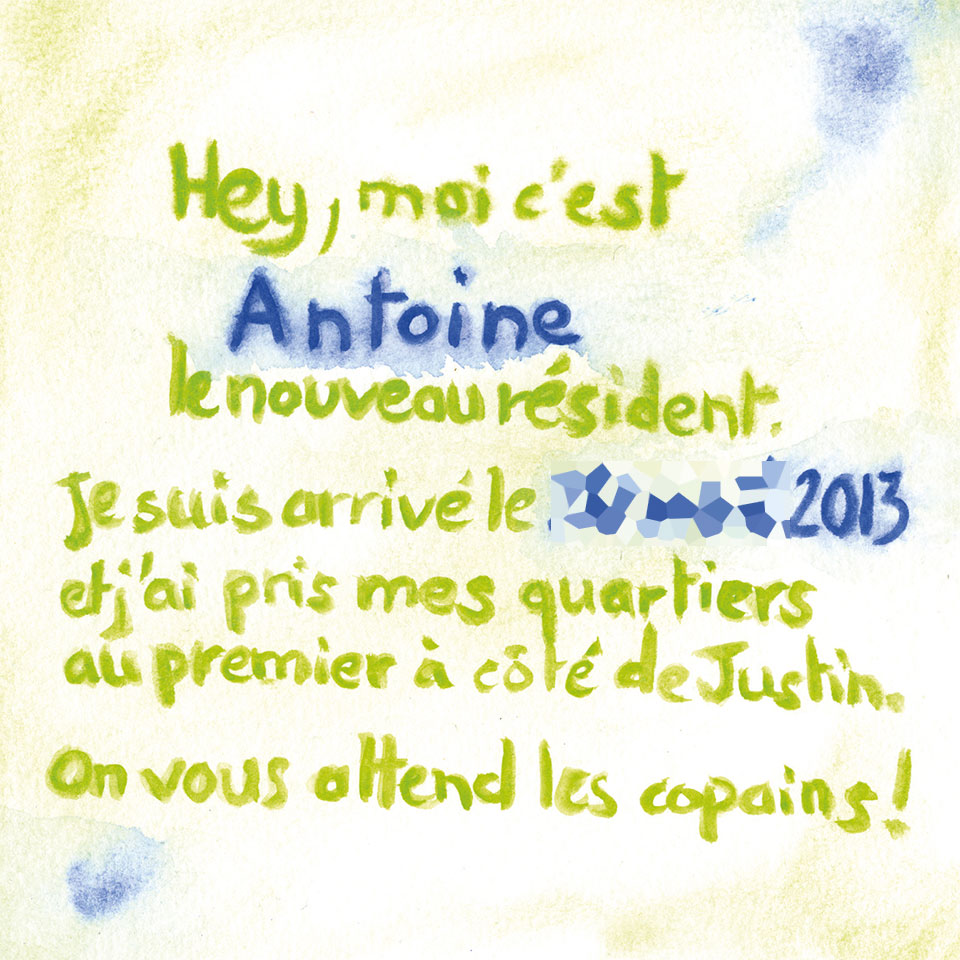 Hey, moi c'est
Antoine
le nouveau résident.
Je suis arrivé le 2013
et j'ai pris mes quartiers
au premier à côté de Justin.
On vous attend les copains !